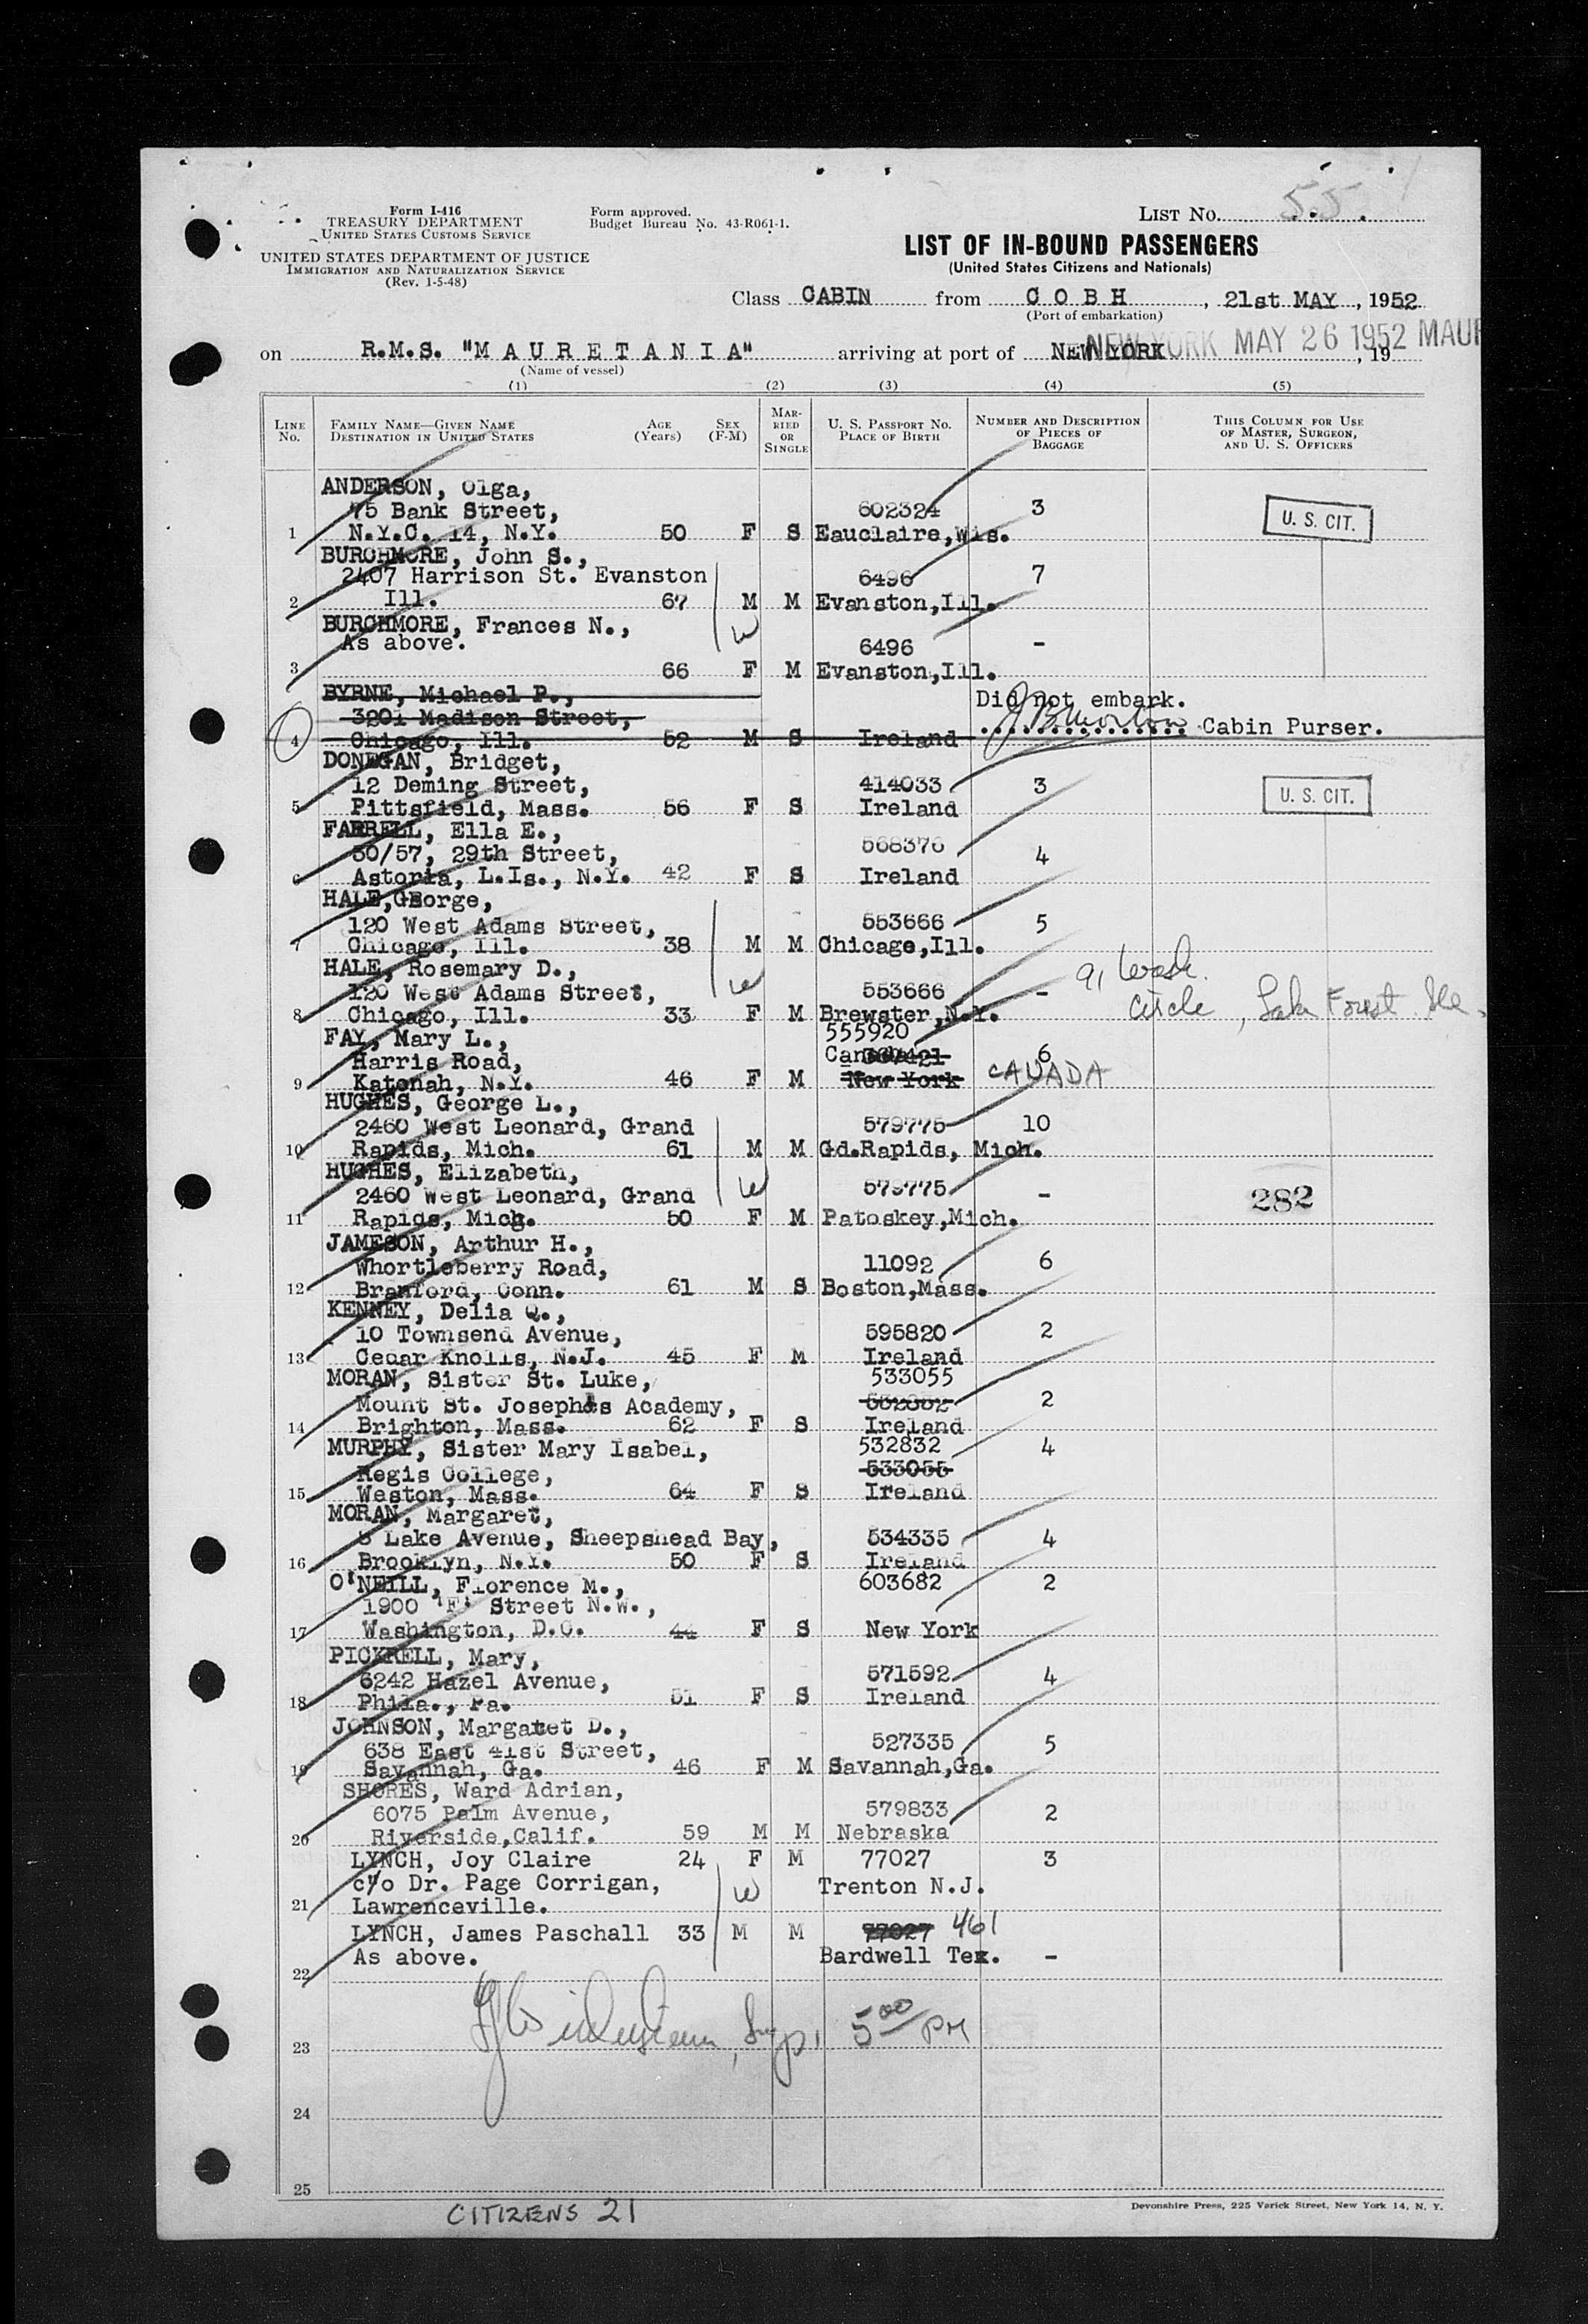 Form I-416
TREASURY DEPARTMENT
UNITED STATES CUSTOMS SERVICE
UNITED STATES DEPARTMENT OF JUSTICE
IMMIGRATION AND NATURALIZATION SERVICE
(Rev. 1-5-48)
Form approved.
Budget Bureau No. 43-R061-1.
LIST NO. 55
LIST OF IN-BOUND PASSENGERS
(United States Citizens and Nationals)
Class CABIN from C O B H, 21st MAY, 1952
(Port of embarkation)
on R.M.S. "M A U R E T A N I A" arriving at port of NEW YORK, 19
NEW YORK MAY 26 1952 MAUR
(Name of vessel)
(1) (2) (3) (4) (5)
LINE NO.
FAMILY NAME—GIVEN NAME
DESTINATION IN UNITED STATES
AGE (Years)
SEX (F-M)
MARRIED OR SINGLE
U. S. PASSPORT NO.
PLACE OF BIRTH
NUMBER AND DESCRIPTION OF PIECES OF BAGGAGE
THIS COLUMN FOR USE OF MASTER, SURGEON, AND U. S. OFFICERS
ANDERSON, Olga,
75 Bank Street, 602324 3 U. S. CIT.
1 N.Y.C. 14, N.Y. 50 F S Eauclaire,Wis.
BURCHMORE, John S.,
2407 Harrison St. Evanston 6496 7
2 Ill. 67 M M Evanston,Ill.
BURCHMORE, Frances N., W
As above. 6496 -
3 66 F M Evanston,Ill.
BYRNE, Michael P., Did not embark.
3201 Madison Street, Cabin Purser.
4 Chicago, Ill. 52 M S Ireland
DONEGAN, Bridget,
12 Deming Street, 414033 3 U. S. CIT.
5 Pittsfield, Mass. 56 F S Ireland
FARRELL, Ella E.,
30/57, 29th Street, 568376 4
6 Astoria, L.Is., N.Y. 42 F S Ireland
HALE,George,
120 West Adams Street, 553666 5
7 Chicago, Ill. 38 M M Chicago,Ill.
HALE, Rosemary D., W
120 West Adams Street, 553666 -
8 Chicago, Ill. 33 F M Brewster,N.Y. Circle, Lake Forest Ill.
FAY, Mary L., 555920
Harris Road, Canada 6
9 Katonah, N.Y. 46 F M New York CANADA
HUGHES, George L.,
2460 West Leonard, Grand 579775 10
10 Rapids, Mich. 61 M M Gd.Rapids, Mich.
HUGHES, Elizabeth, W
2460 West Leonard, Grand 579775 - 282
11 Rapids, Mich. 50 F M Patoskey,Mich.
JAMESON, Arthur H.,
Whortleberry Road, 11092 6
12 Branford, Conn. 61 M S Boston,Mass.
KENNEY, Delia Q.,
10 Townsend Avenue, 595820 2
13 Cedar Knolls, N.J. 45 F M Ireland
MORAN, Sister St. Luke, 533055
Mount St. Josephs Academy, 532832 2
14 Brighton, Mass. 62 F S Ireland
MURPHY, Sister Mary Isabel, 532832 4
Regis College, 533055
15 Weston, Mass. 64 F S Ireland
MORAN, Margaret,
8 Lake Avenue, Sheepshead Bay, 534335 4
16 Brooklyn, N.Y. 50 F S Ireland
O'NEILL, Florence M., 603682 2
1900 'F' Street N.W.,
17 Washington, D.C. 44 F S New York
PICKRELL, Mary,
6242 Hazel Avenue, 571592 4
18 Phila., Pa. 51 F S Ireland
JOHNSON, Margaret D.,
638 East 41st Street, 527335 5
19 Savannah, Ga. 46 F M Savannah,Ga.
SHORES, Ward Adrian,
6075 Palm Avenue, 579833 2
20 Riverside,Calif. 59 M M Nebraska
LYNCH, Joy Claire 24 F M 77027 3
c/o Dr. Page Corrigan, W Trenton N.J.
21 Lawrenceville.
LYNCH, James Paschall 33 M M 77027 461
As above. Bardwell Tex. -
22
5 00 PM
23
24
25
CITIZENS 21
Devonshire Press, 225 Varick Street, New York 14, N. Y.